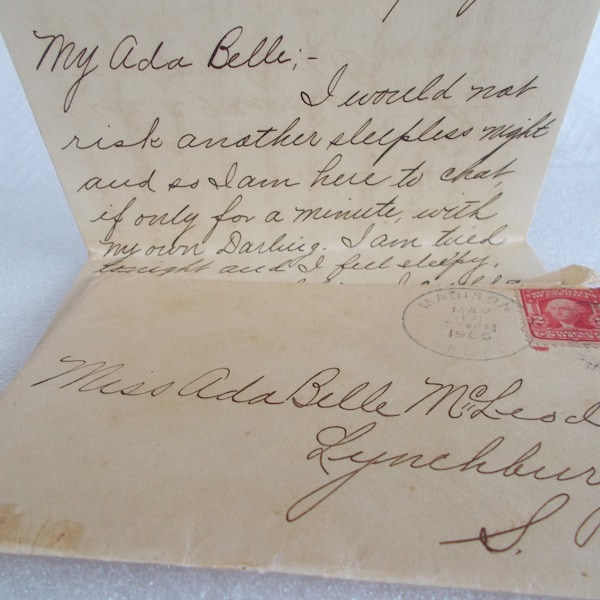 My Ada Belle;-
I would not
risk another sleepless night
and so I am here to chat,
if only for a minute, with
my own Darling. I am tired
tonight and I feel sleepy.
MADISON
MAY
PM
1905
FLA.
2
Miss Ada Belle McLeod
Lynchbur
S.